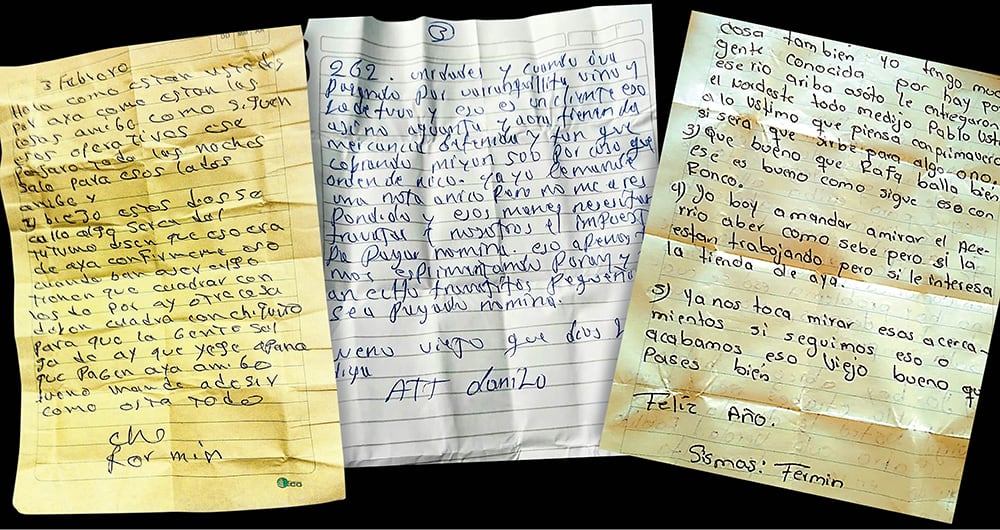 3 Febrero
Hola como estan ustedes
Por aya como estan las
cosas amibo como siguen
esos operativos ese
pajaro todo las noches
sale para esos lados
amibo y
y biejo estos dos se
callo algo serca del
tuyuno disen que eso era
de aya confirmeme eso
cuando ban aser algo
tienen que cuadrar con
los de Por ay otra cosa
dejen cuadra con chiquito
para que la Gente sal
ga de ay que yege apana
que Pagen aya amibo
bueno mande adesir
como esta todo
cho
Formin
3
262. unidades y cuando iva
Pasando por varranquillita vino y
lo detuvo y eso es un cliente eso
asi no aguanta y aora tienen la
mercancia detenida y ton que
cobrando mil x son por cosa que
orden de nico. ya yo le mande
una nota anico Pero no me a res
Pondido y esos manes nesesitan
travajar y nosotros el impuesto
Pa Pagar nomina. eso apenas
nos
an echo travajitos Pequeños
sea Pagado nomina.
ueno viejo que dios l
ATT daniLo
cosa tambien yo tengo muc
gente conocida por hay po
ese rio ariba asoto le entregaron
el nordeste todo medijo Pablo usto
a lo ustimo que piensa con primavera
si sera que sirbe para algo o no.
3) Que bueno que Rafa balla bien
ese es bueno como sigue eso con
Ronco.
4) Yo boy a mandar amirar el Ace-
rrio aber como sebe pero si la
estan trabajando pero si le interesa
la tienda de aya.
5) Ya nos toca mirar esas acerca-
mientos si seguimos eso o
acabamos eso Viejo bueno q
Pases bien
Feliz Año.
Sismas: Fermin